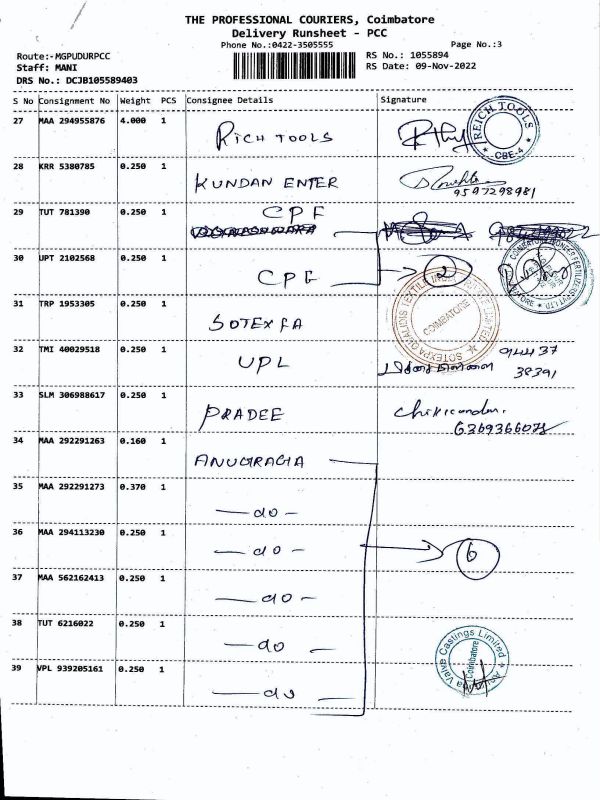 THE PROFESSIONAL COURIERS, Coimbatore
Delivery Runsheet - PCC
Phone No.:0422-3505555
Page No.:3
Route:-MGPUDURPCC
RS No.: 1055894
Staff: MANI
RS Date: 09-Nov-2022
DRS No.: DCJB105589403
S No Consignment No Weight PCS Consignee Details Signature
27 MAA 294955876 4.000 1 RICH TOOLS
REICH TOOLS
* CBE-4 *
28 KRR 5380785 0.250 1 KUNDAN ENTER
9597298981
29 TUT 781390 0.250 1 CPF
30 UPT 2102568 0.250 1 CPF 2
31 TRP 1953305 0.250 1 SOTEXFA
SOTEXPA QUALIDIS TEXTILE LIMITED
COIMBATORE
32 TMI 40029518 0.250 1 UPL 94437
38391
33 SLM 306988617 0.250 1 PRADEE
34 MAA 292291263 0.160 1 ANUGRAGIA
35 MAA 292291273 0.370 1 -do-
36 MAA 294113230 0.250 1 -do- 6
37 MAA 562162413 0.250 1 -do-
38 TUT 6216022 0.250 1 -do-
Valve Castings Limited
Coimbatore
39 VPL 939205161 0.250 1 -do-